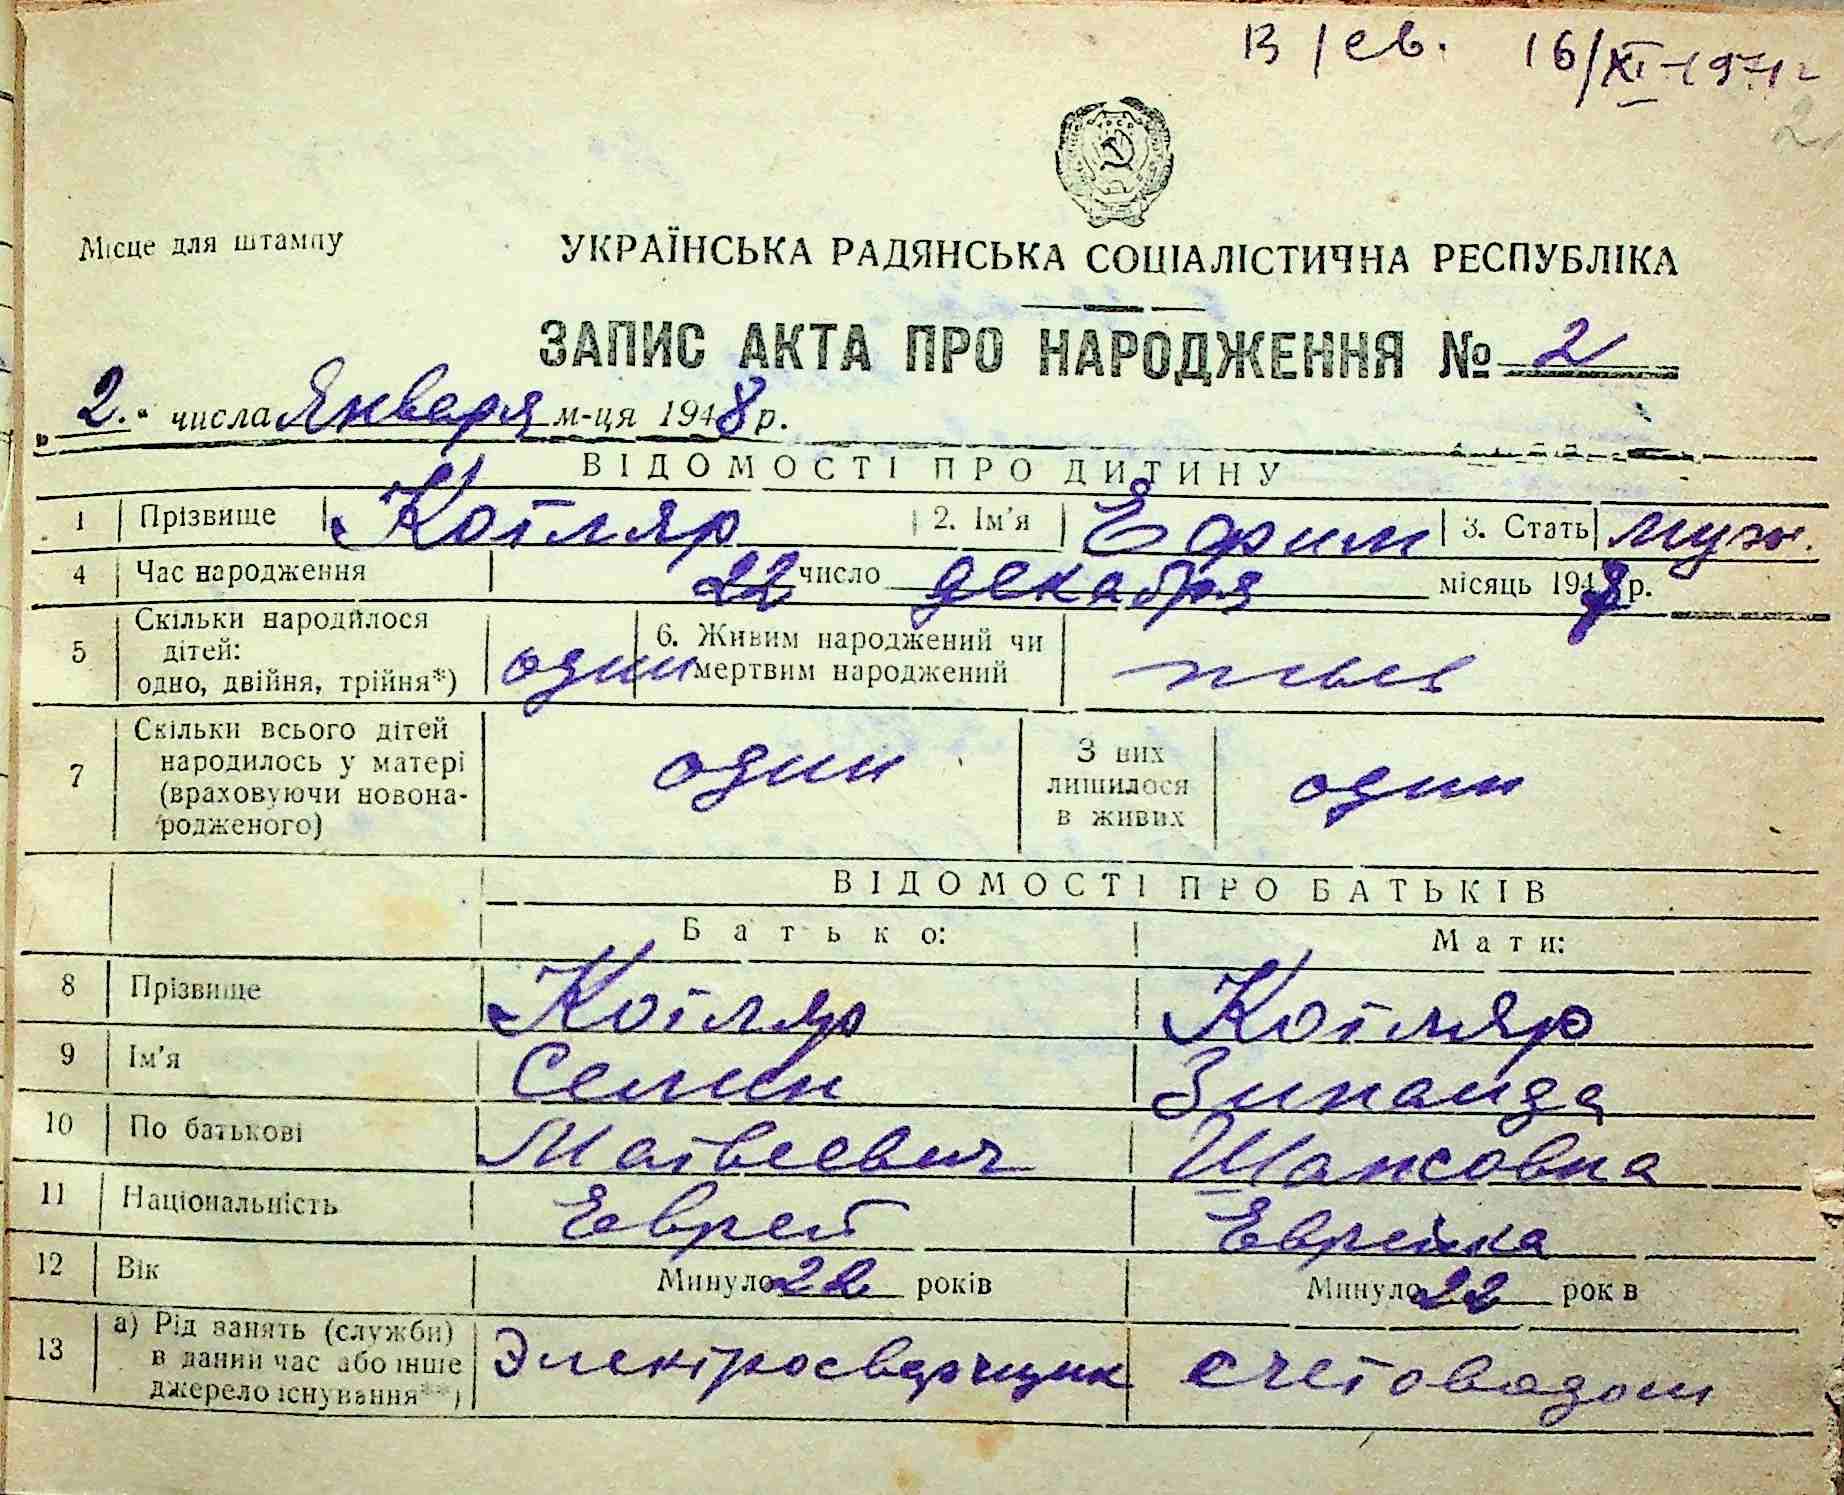 В/св. 16/XI-1971г
2
Місце для штампу
УКРАЇНСЬКА РАДЯНСЬКА СОЦІАЛІСТИЧНА РЕСПУБЛІКА
ЗАПИС АКТА ПРО НАРОДЖЕННЯ № 2
„2.“ числа Января м-ця 1948 р.
ВІДОМОСТІ ПРО ДИТИНУ
1 Прізвище Котляр 2. Ім'я Ефим 3. Стать муж.
4 Час народження 22 число декабря місяць 1947 р.
5 Скільки народилося дітей: одно, двійня, трійня*) один 6. Живим народжений чи мертвим народжений
7 Скільки всього дітей народилось у матері (враховуючи новонародженого) один З них лишилося в живих один
ВІДОМОСТІ ПРО БАТЬКІВ
Батько: Мати:
8 Прізвище Котляр Котляр
9 Ім'я Семен Зинаида
10 По батькові Матвеевич
11 Національність Еврей Еврейка
12 Вік Минуло 22 років Минуло 22 років
13 а) Рід занять (служби) в даний час або інше джерело існування**) Электросварщик счетоводом